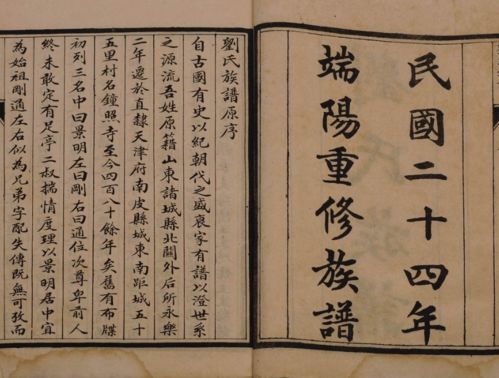 民國二十四年
端陽重修族譜
劉氏族譜原序
自古國有史以紀朝代之盛衰家有譜以澄世系
之源流吾姓原籍山東諸城縣北關外后所永樂
二年遷於直隸天津府南皮縣城東南距城五十
五里村名鐘照寺至今四百八十餘年矣舊有布牒
初列三名中曰景明左曰剛右曰通位次尊卑前人
終未敢定有足亭二叔揣情度理以景明居中宜
為始祖剛通左右似為兄弟字配失傳既無可攷而